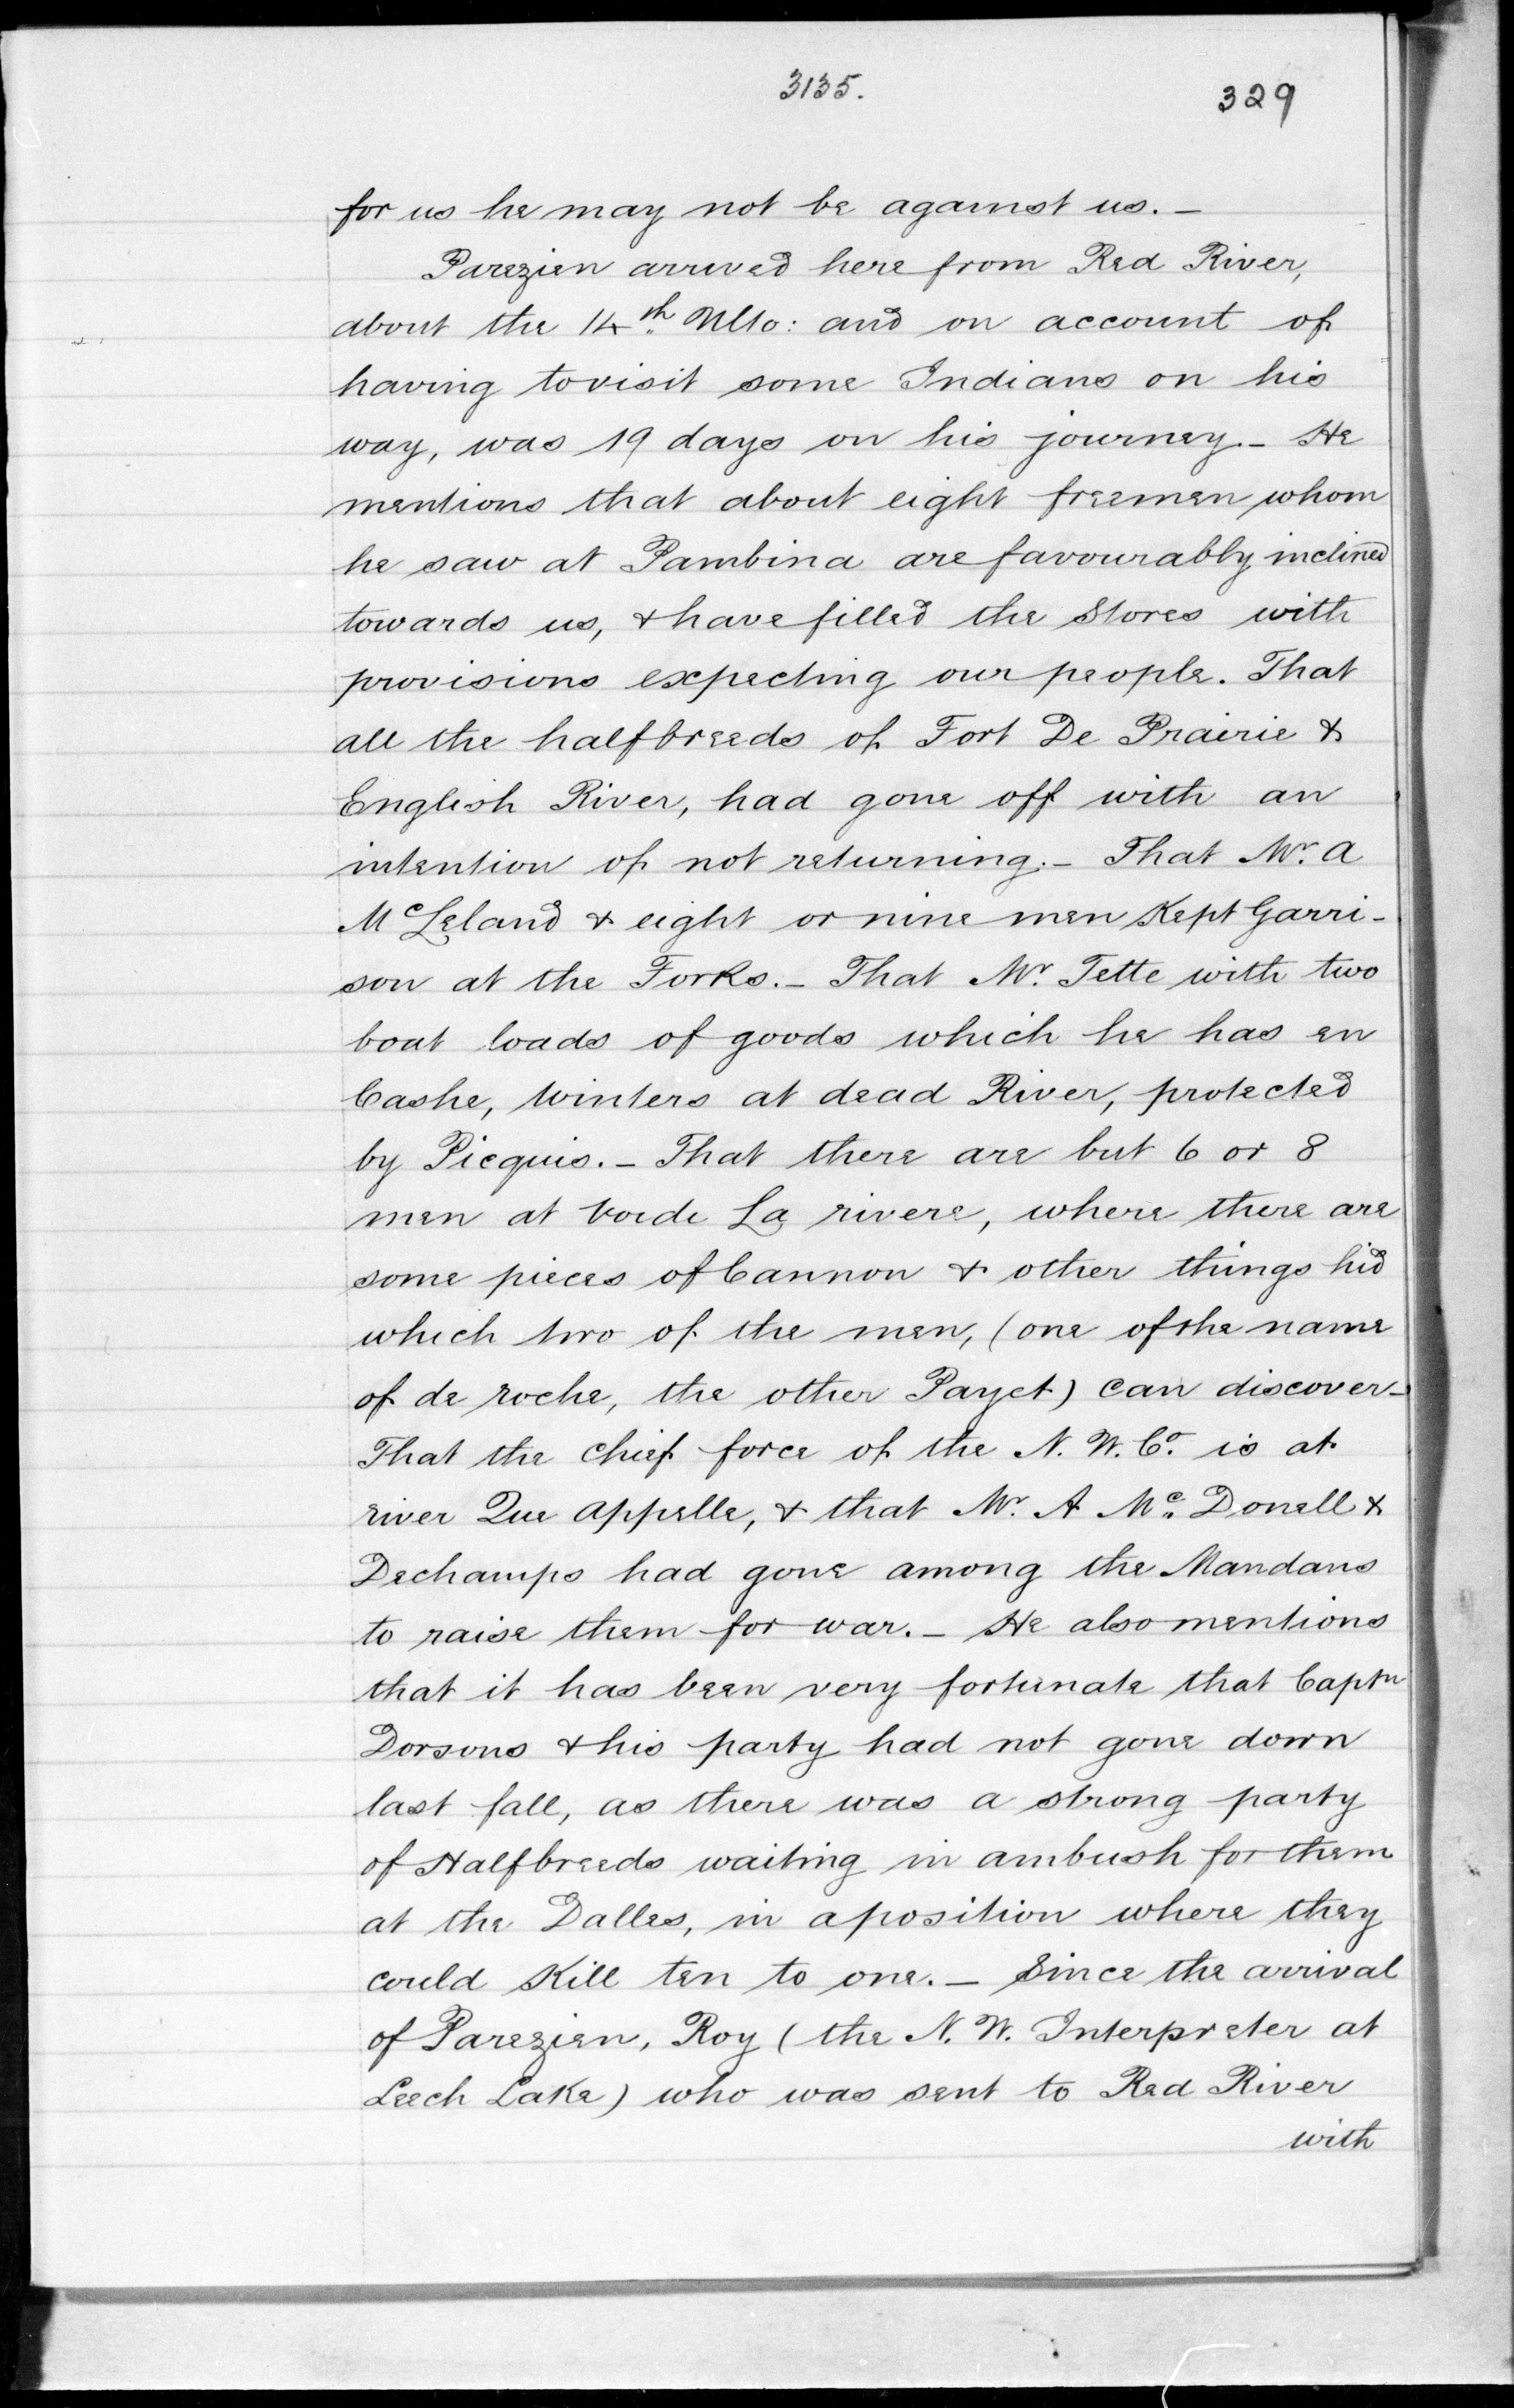 3135.
329
for us he may not be against us. –
Parezien arrived here from Red River,
about the 14th Ulto: and on account of
having to visit some Indians on his
way, was 19 days on his journey. – He
mentions that about eight freemen whom
he saw at Pambina are favourably inclined
towards us, & have filled the Stores with
provisions expecting our people. That
all the halfbreeds of Fort De Prairie &
English River, had gone off with an
intention of not returning. – That Mr. A
McLeland & eight or nine men Kept Garri-
son at the Forks. – That Mr. Tette with two
boat loads of goods which he has en
Cashe, Winters at dead River, protected
by Picquis. – That there are but 6 or 8
men at La rivere, where there are
some pieces of Cannon & other things hid
which two of the men, (one of the name
of de roche, the other Payet) can discover –
That the Chief force of the N. W. Co. is at
river Que appelle, & that Mr. A Mc. Donell &
Dechamps had gone among the Mandans
to raise them for war. – He also mentions
that it has been very fortunate that Captn
Dorsons & his party had not gone down
last fall, as there was a strong party
of Halfbreeds waiting in ambush for them
at the Dalles, in a position where they
could Kill ten to one. – Since the arrival
of Parezien, Roy (the N. W. Interpreter at
Leech Lake) who was sent to Red River
with